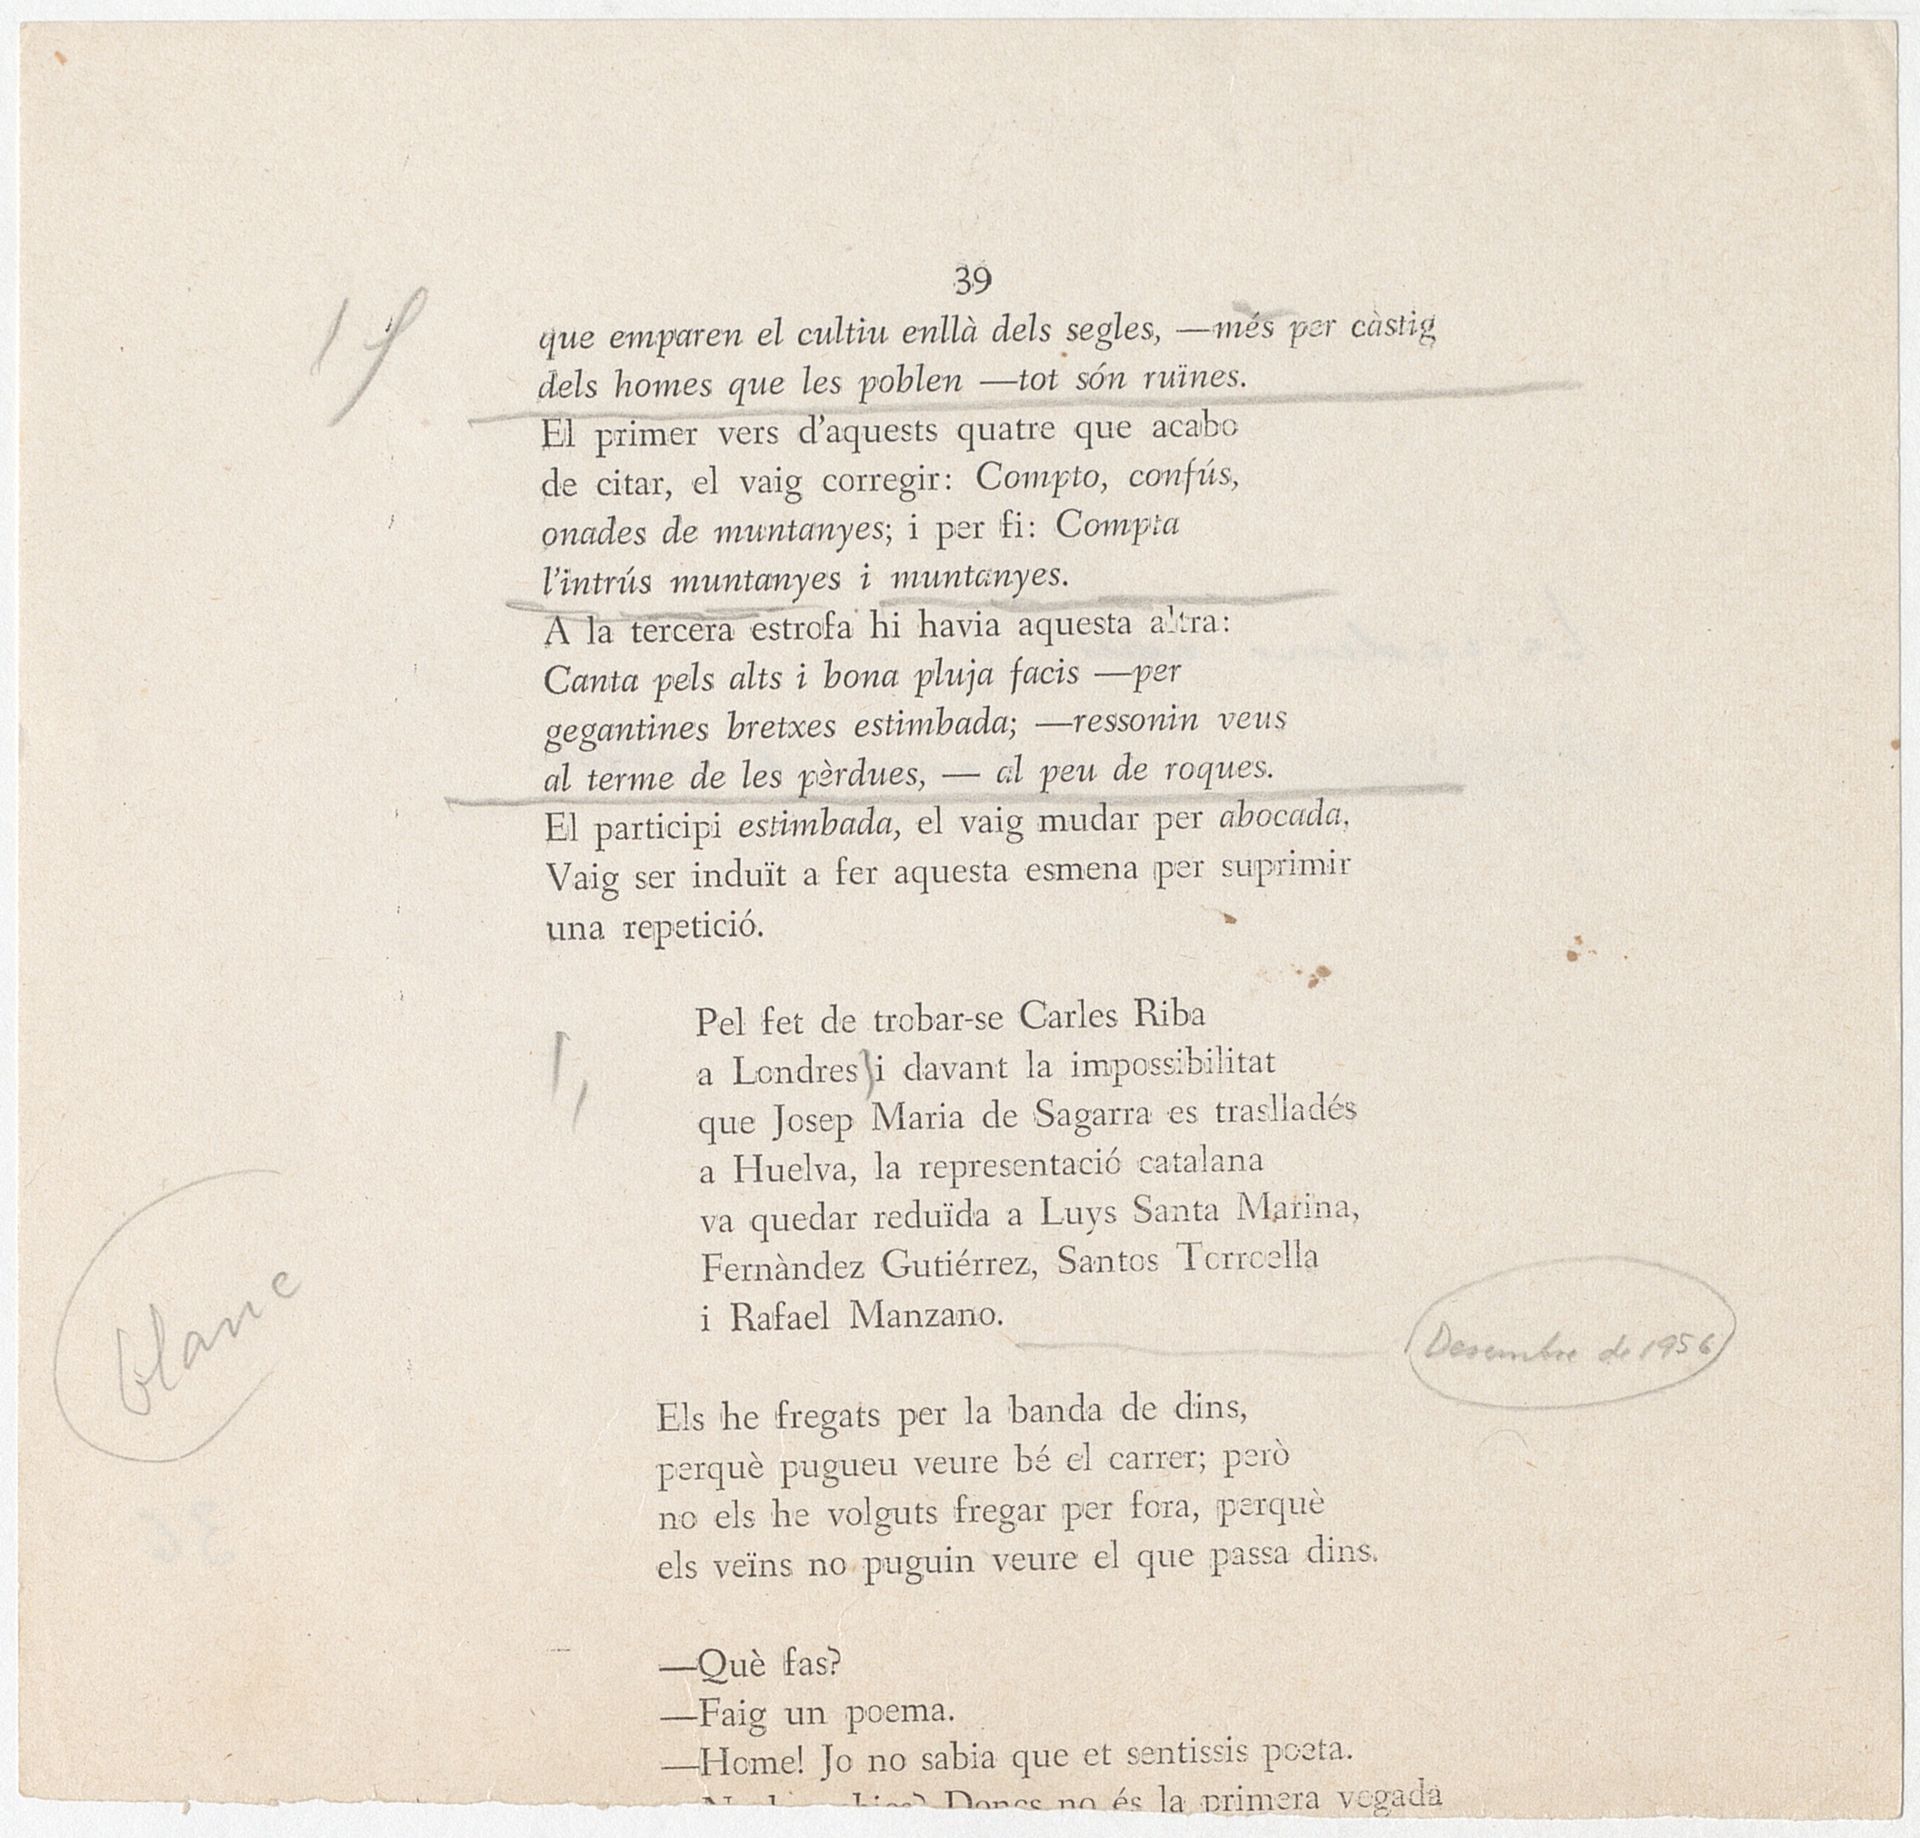 39
que emparen el cultiu enllà dels segles, —més per càstig
dels homes que les poblen —tot són ruïnes.
El primer vers d'aquests quatre que acabo
de citar, el vaig corregir: Compto, confús,
onades de muntanyes; i per fi: Compta
l'intrús muntanyes i muntanyes.
A la tercera estrofa hi havia aquesta altra:
Canta pels alts i bona pluja facis —per
gegantines bretxes estimbada; —ressonin veus
al terme de les pèrdues, — al peu de roques.
El participi estimbada, el vaig mudar per abocada,
Vaig ser induït a fer aquesta esmena per suprimir
una repetició.
Pel fet de trobar-se Carles Riba
a Londres i davant la impossibilitat
que Josep Maria de Sagarra es traslladés
a Huelva, la representació catalana
va quedar reduïda a Luys Santa Marina,
Fernàndez Gutiérrez, Santos Torroella
i Rafael Manzano.
blanc
Desembre de 1956
Els he fregats per la banda de dins,
perquè pugueu veure bé el carrer; però
no els he volguts fregar per fora, perquè
els veïns no puguin veure el que passa dins.
—Què fas?
—Faig un poema.
—Home! Jo no sabia que et sentissis poeta.
Doncs no és la primera vegada